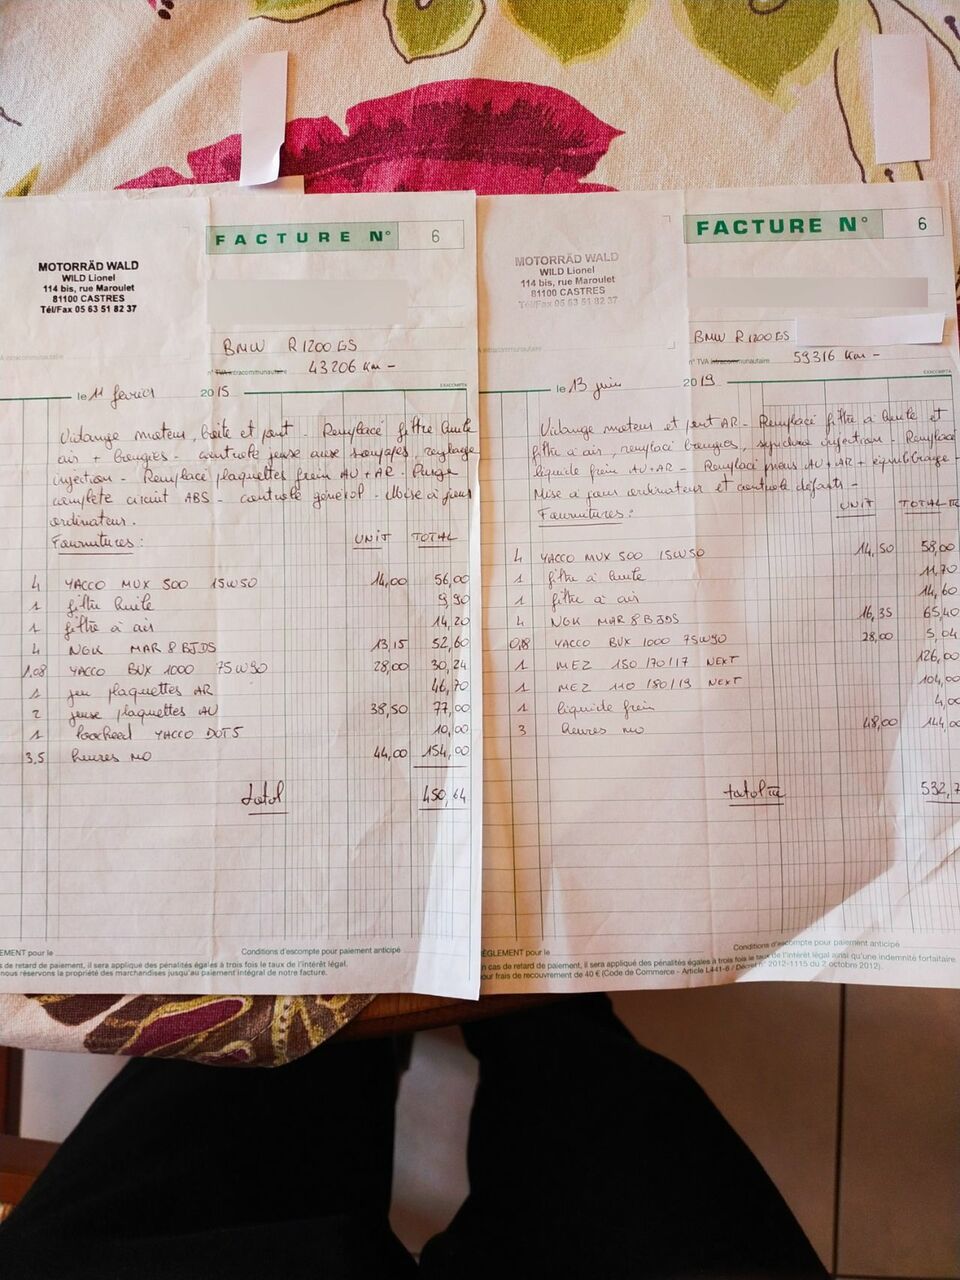 FACTURE N° 6
MOTORRÄD WALD
WILD Lionel
114 bis, rue Maroulet
81100 CASTRES
Tél/Fax 05 63 51 82 37
BMW R 1200 GS
A intracommunautaire
n° TVA intracommunautaire 43206 Km -
EXACOMPTA
le 11 février 2015
Vidange moteur, boite et pont - Remplacé filtre huile
air + bougies - controlé jeuse aux soupapes, reglage
injection - Remplacé plaquettes frein AV + AR - Purge
complete circuit ABS - controlé général - Mise à jour
ordinateur.
Fournitures : UNIT TOTAL
4 YACCO MUX 500 15W50 14,00 56,00
1 filtre huile 9,90
1 filtre à air 14,20
4 NGK MAR 8 BJDS 13,15 52,60
1,08 YACCO BUX 1000 75W90 28,00 30,24
1 jeu plaquettes AR 46,70
2 jeuse plaquettes AV 38,50 77,00
1 loockeed YACCO DOT5 10,00
3,5 heures MO 44,00 154,00
total 450,64
EMENT pour le Conditions d'escompte pour paiement anticipé
s de retard de paiement, il sera appliqué des pénalités égales à trois fois le taux de l'intérêt légal.
nous réservons la propriété des marchandises jusqu'au paiement intégral de notre facture.
FACTURE N° 6
MOTORRÄD WALD
WILD Lionel
114 bis, rue Maroulet
81100 CASTRES
Tél/Fax 05 63 51 82 37
BMW R 1200 GS
A intracommunautaire
n° TVA intracommunautaire 59316 Km -
EXACOMPTA
le 13 juin 2019
Vidange moteur et pont AR - Remplacé filtre à huile et
filtre à air, remplacé bougies, synchro injection - Remplacé
liquide frein AV + AR - Remplacé pneus AV + AR + équilibrage
Mise à jour ordinateur et controlé défauts -
Fournitures : UNIT TOTAL
4 YACCO MUX 500 15W50 14,50 58,00
1 filtre à huile 11,70
1 filtre à air 14,60
4 NGK MAR 8 BJDS 16,35 65,40
0,18 YACCO BUX 1000 75W90 28,00 5,04
1 MEZ 150 170/17 NEXT 126,00
1 MEZ 110 /80/19 NEXT 104,00
1 liquide frein 4,00
3 heures MO 48,00 144,00
total 532,7
ÉGLEMENT pour le Conditions d'escompte pour paiement anticipé
n cas de retard de paiement, il sera appliqué des pénalités égales à trois fois le taux de l'intérêt légal ainsi qu'une indemnité forfaitaire
our frais de recouvrement de 40 € (Code de Commerce - Article L441-6 / Décret n° 2012-1115 du 2 octobre 2012).